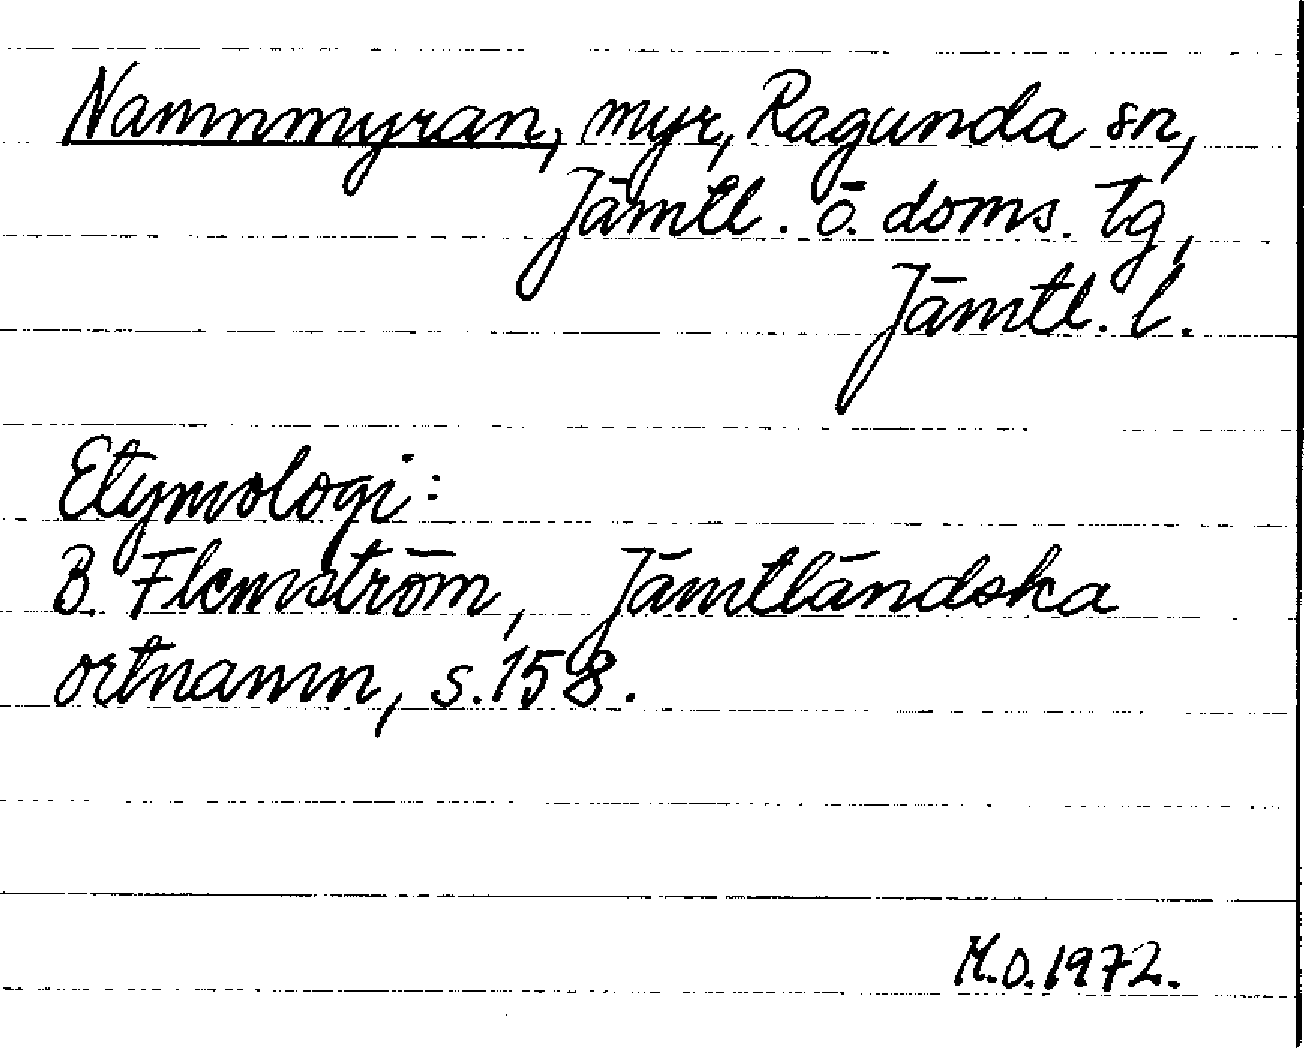 Namnmyran, myr, Ragunda sn,
Jämtl. ö. doms. tg,
Jämtl. l.
Etymologi:
B. Flemström, Jämtländska
ortnamn, s. 158.
M.O. 1972.